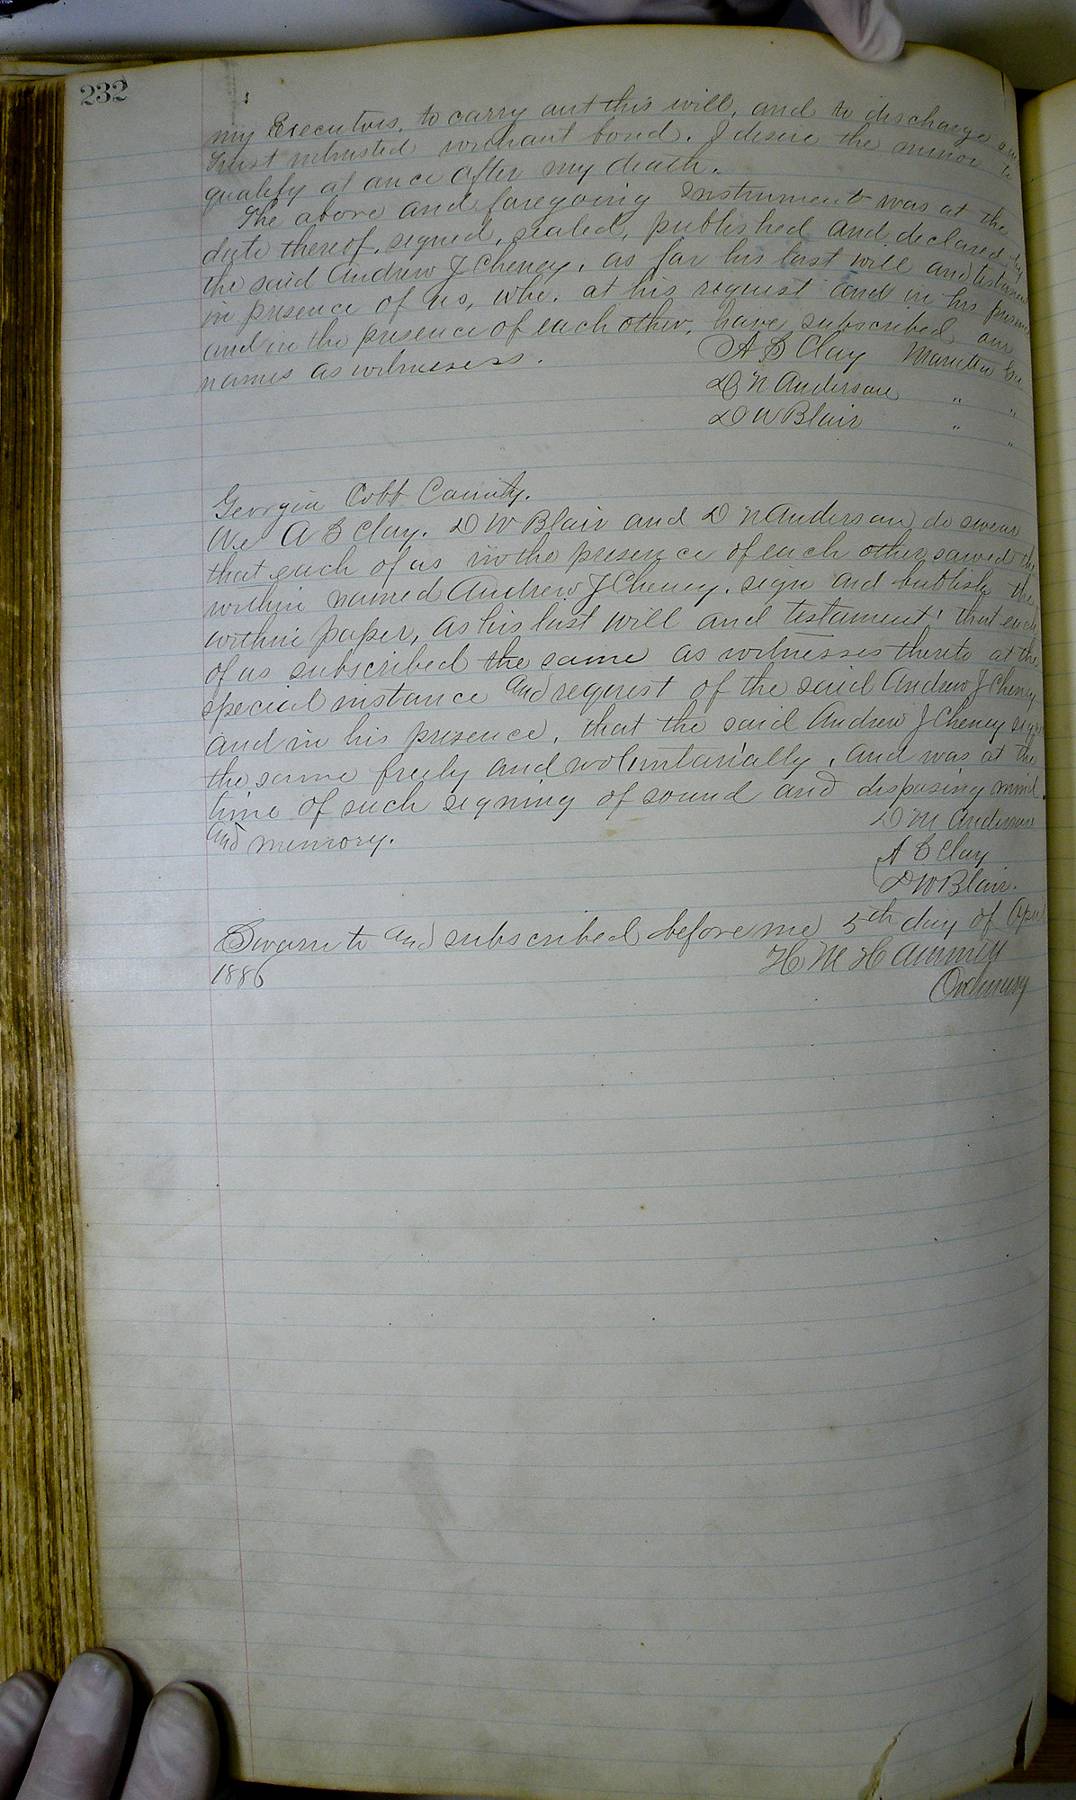 232
my Executors, to carry out this will, and to discharge
trust intrusted without bond. I desire the minor to
qualify at once after my death.
The above and foregoing Instrument was at the
date thereof, signed, sealed, published and declared by
the said Andrew J Cheney, as far his last will and testament
in presence of us, who, at his request and in his presence
and in the presence of each other, have subscribed our
names as witnesses.
A S Clay Marietta Ga
D N Anderson " "
D W Blair " "
Georgia Cobb County.
We A S Clay. D W Blair and D N Anderson, do swear
that each of us in the presence of each other, sawed the
within named Andrew J Cheney, sign and publish the
within paper, as his last will and testament, that each
of us subscribed the same as witnesses thereto at the
special instance and request of the said Andrew J Cheney
and in his presence, that the said Andrew J Cheney sign
the same freely and voluntarially, and was at the
time of such signing of sound and disposing mind
and memory.
D M Anderson
A S Clay
D W Blair.
Sworn to and subscribed before me 5th day of Apri
1886
H M Hammett
Ordinary